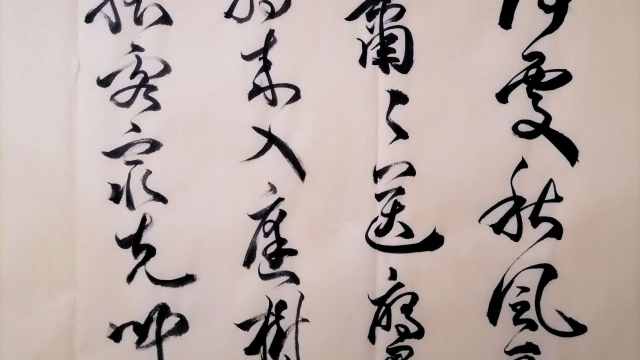 何處秋風
蕭々送雁
朝来入庭樹
孤客最先聞